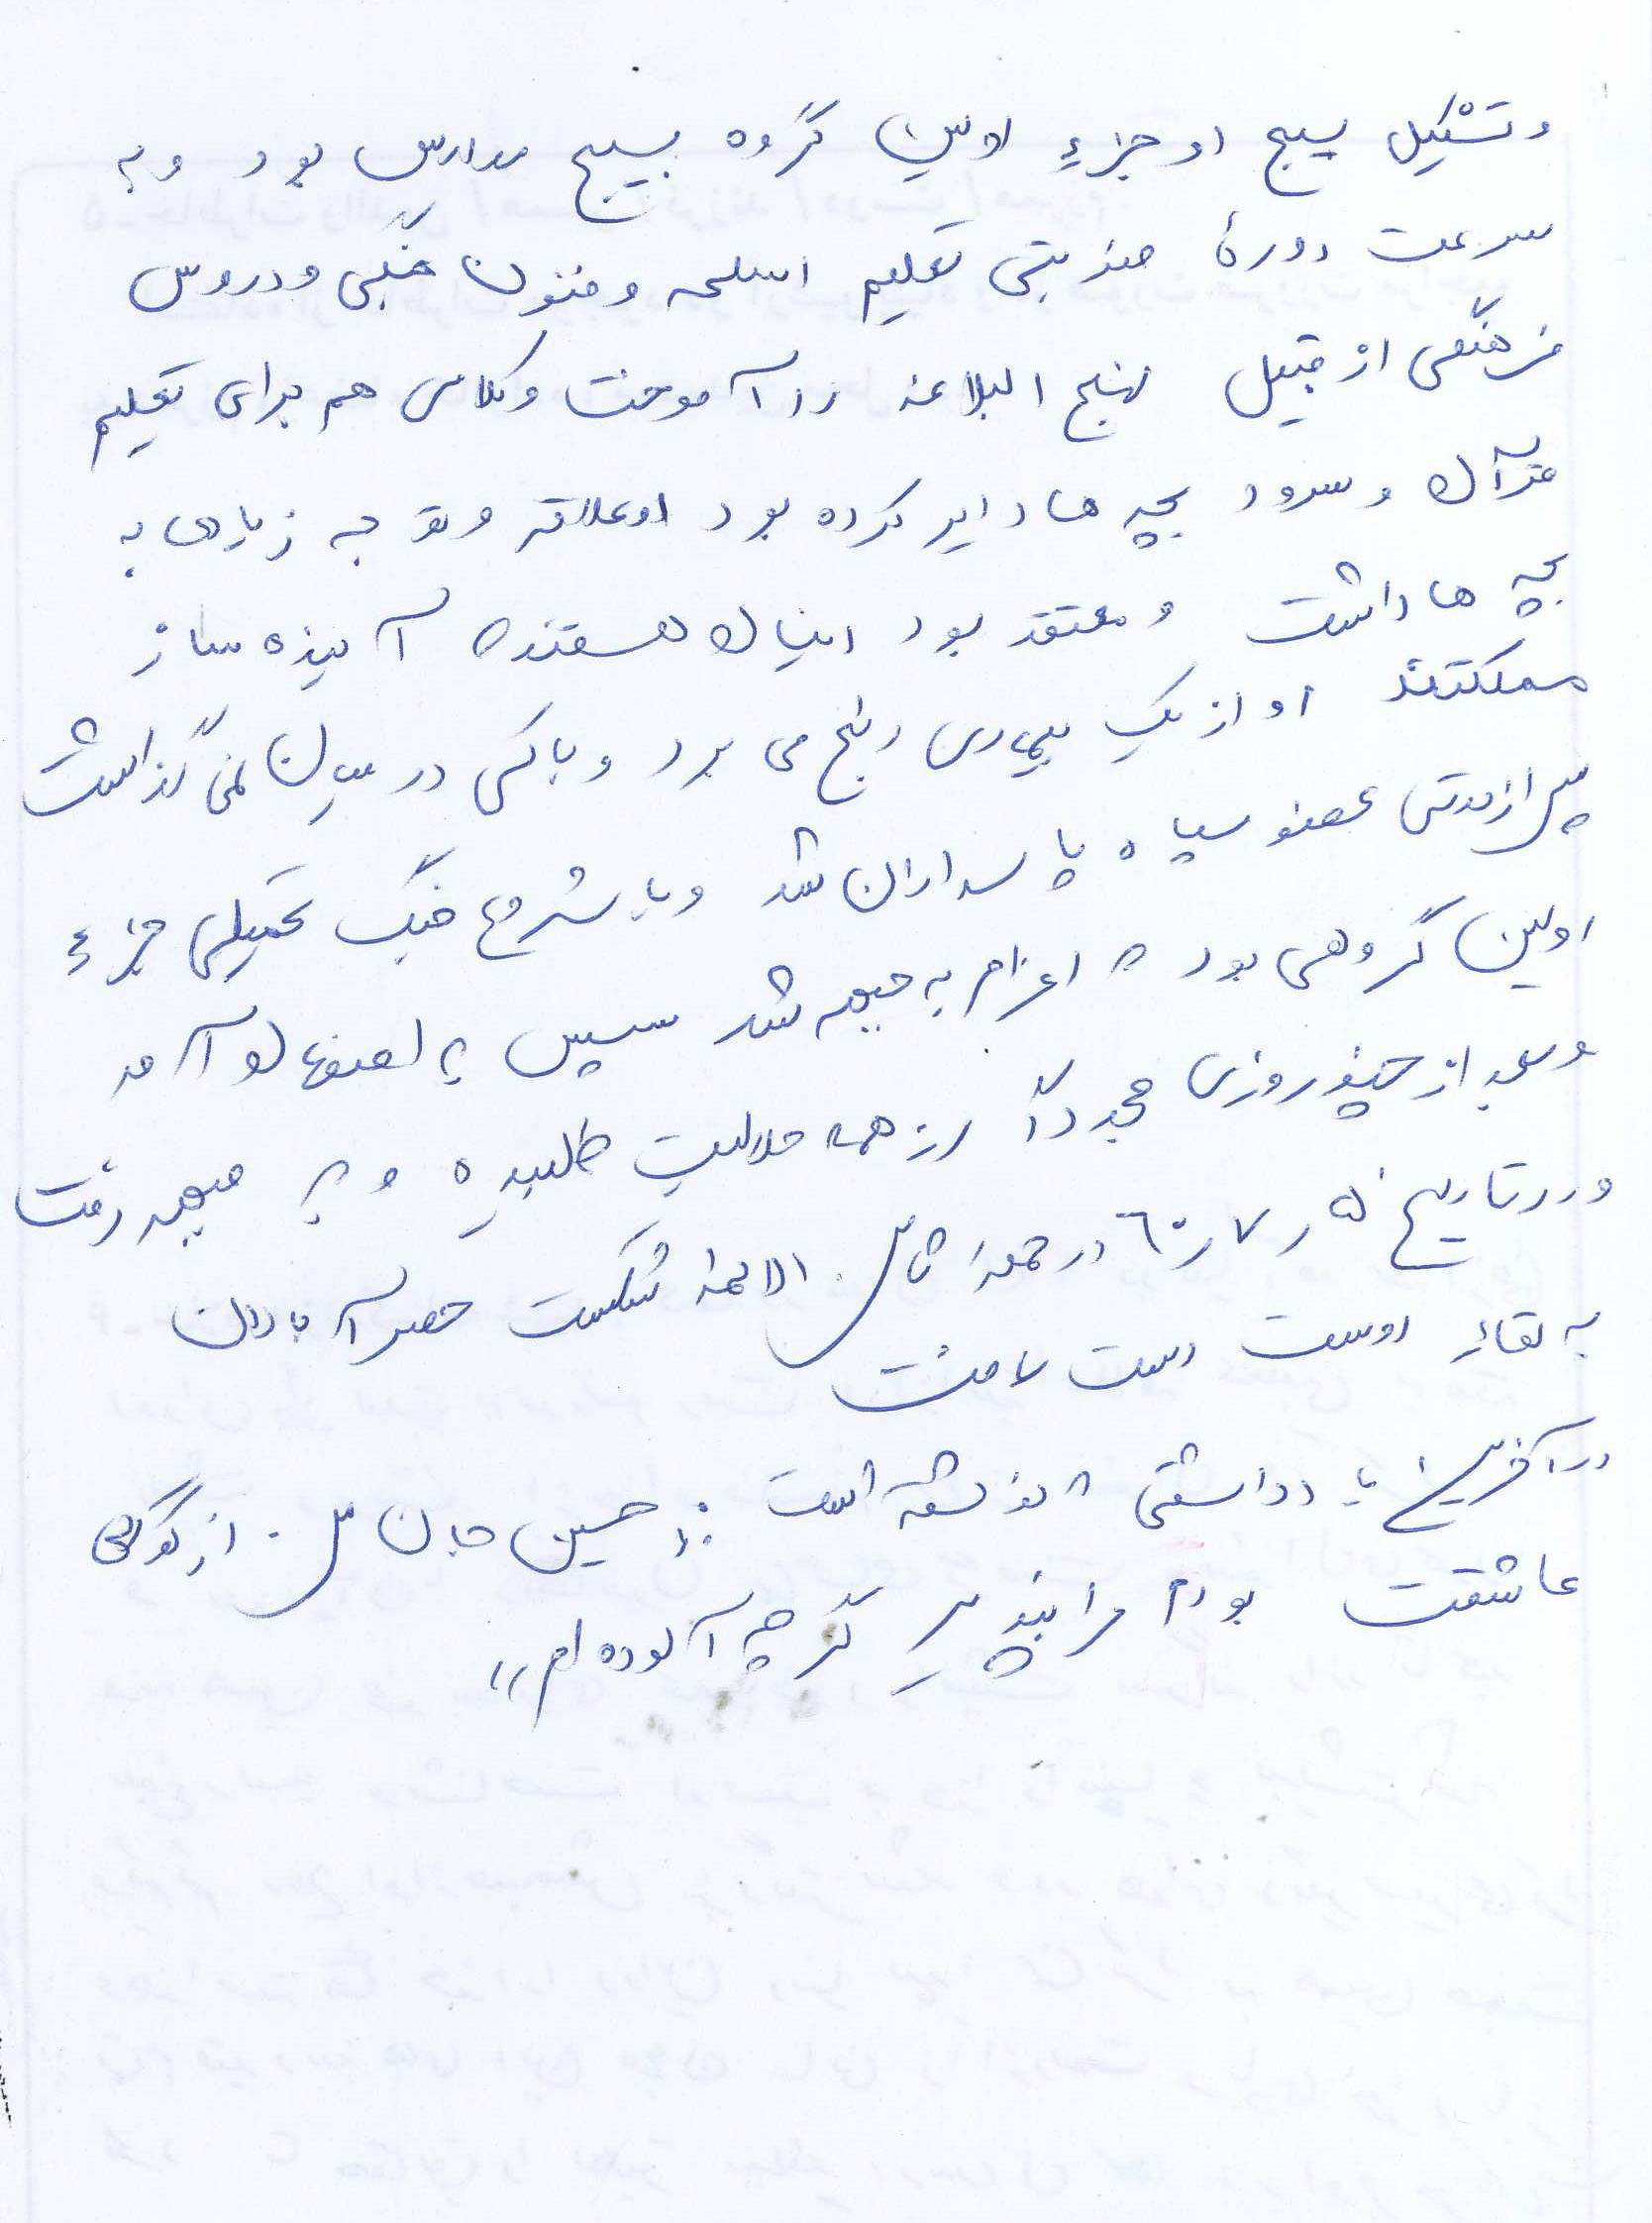 و تشکیل بسیج او جزءِ اولین گروه بسیج مدارس بود و به
سرعت دورهٔ تعلیم اسلحه و فنون جنگی و دروس
فرهنگی از قبیل نهج البلاغه را آموخت و کلاس هم برای تعلیم
قرآن و سرود بچه ها دایر کرده بود او علاقه و توجه زیادی به
بچه ها داشت و معتقد بود اینان هستند که آینده ساز
مملکتند او از یک بیماری رنج می برد و با کسی در میان نمی گذاشت
پس از مدتی عضو سپاه پاسداران شد و با شروع جنگ تحمیلی جزء
اولین گروهی بود که اعزام به جبهه شد سپس به اصفهان آمد
و بعد از چند روزی مجدداً از همه حلالیت طلبیده و به جبهه رفت
و در تاریخ ۵ ر ۷ ر ۶۰ در حملهٔ ثامن الائمه شکست حصر آبادان
به لقاءِ دوست دست یافت
در آخرین یادداشتی که نوشته است: «حسین جان من از کودکی
عاشقت بودم مرا بپذیر گرچه آلوده ام»